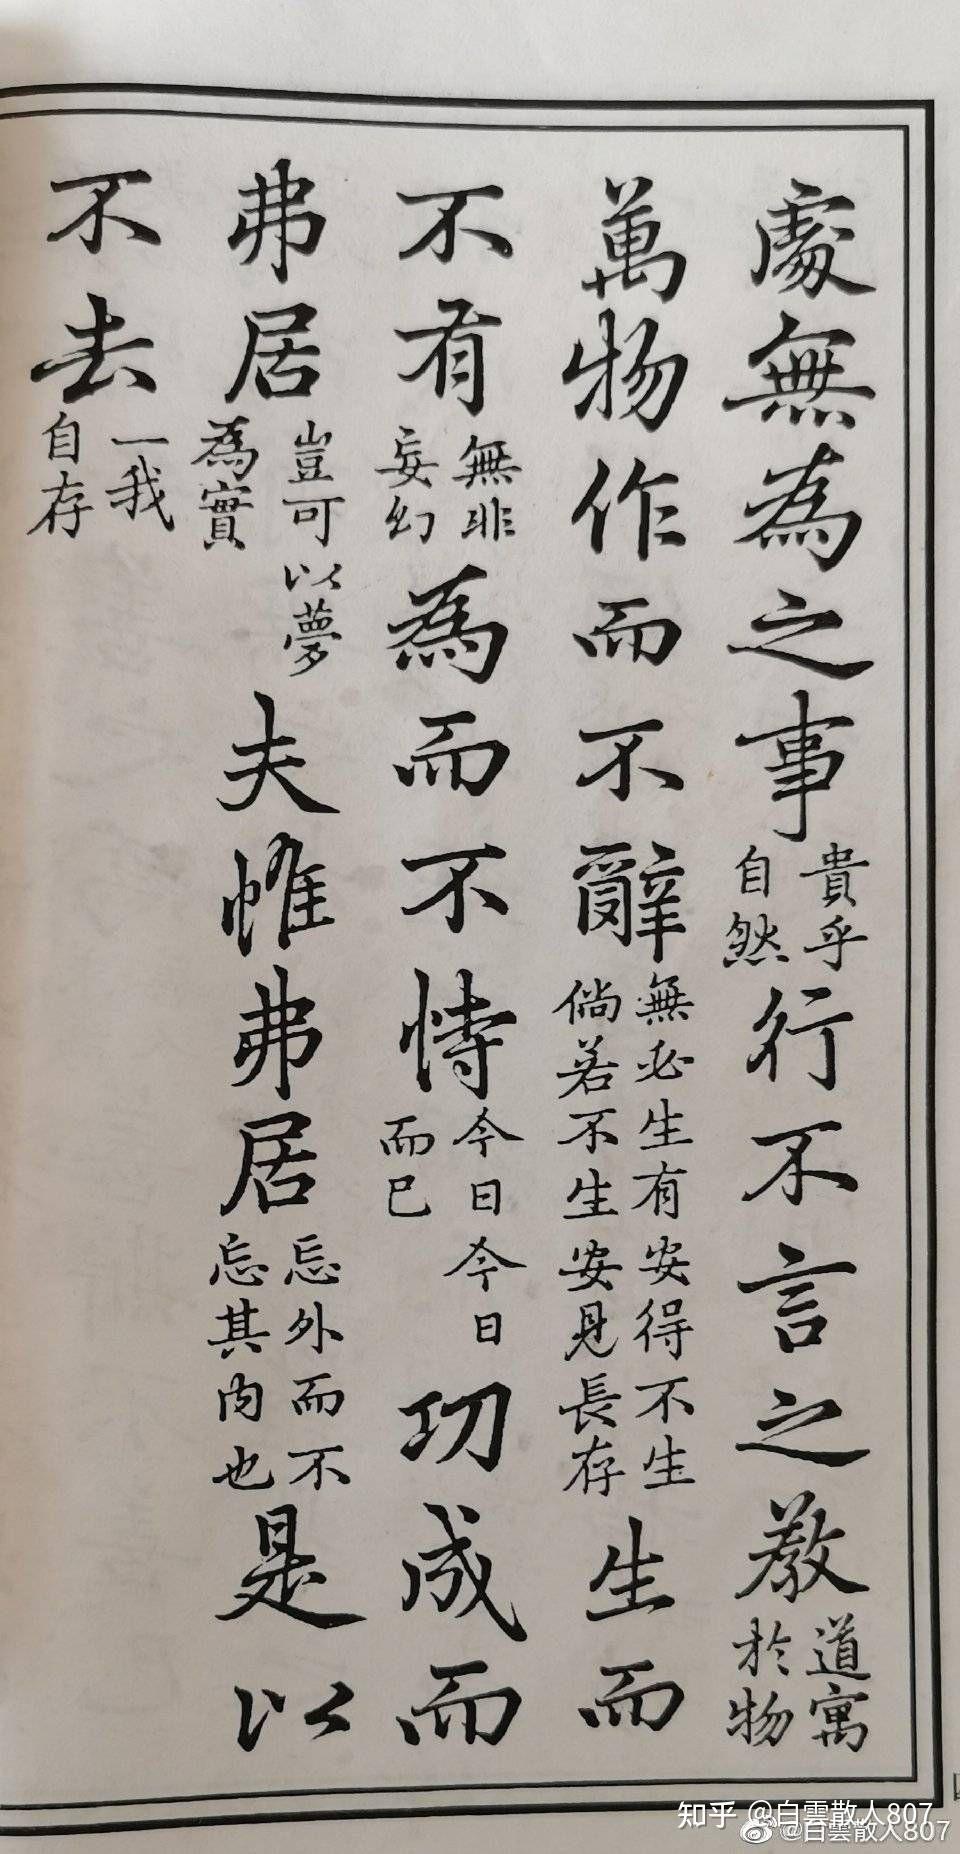 處無為之事貴乎自然行不言之教道寓於物
萬物作而不辭無必生有安得不生倘若不生安見長存生而
不有無非妄幻為而不恃今日今日而已功成而
弗居豈可以夢為實夫惟弗居忘外而不忘其内也是以
不去一我自存
知乎 @白雲散人807
@白雲散人807